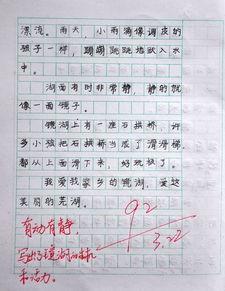 漂流。雨天，小雨滴像调皮的
孩子一样，蹦蹦跳跳地跃入水
中。
湖面有时非常静，静的就
像一面镜子。
镜湖上有一座石拱桥，许
多小孩把石拱桥当成了滑滑梯，
都从上面滑下来，好玩极了。
我爱我家乡的镜湖，爱这
美丽的芜湖。
92
有动有静，
3.22
写出了镜湖的
和活力。